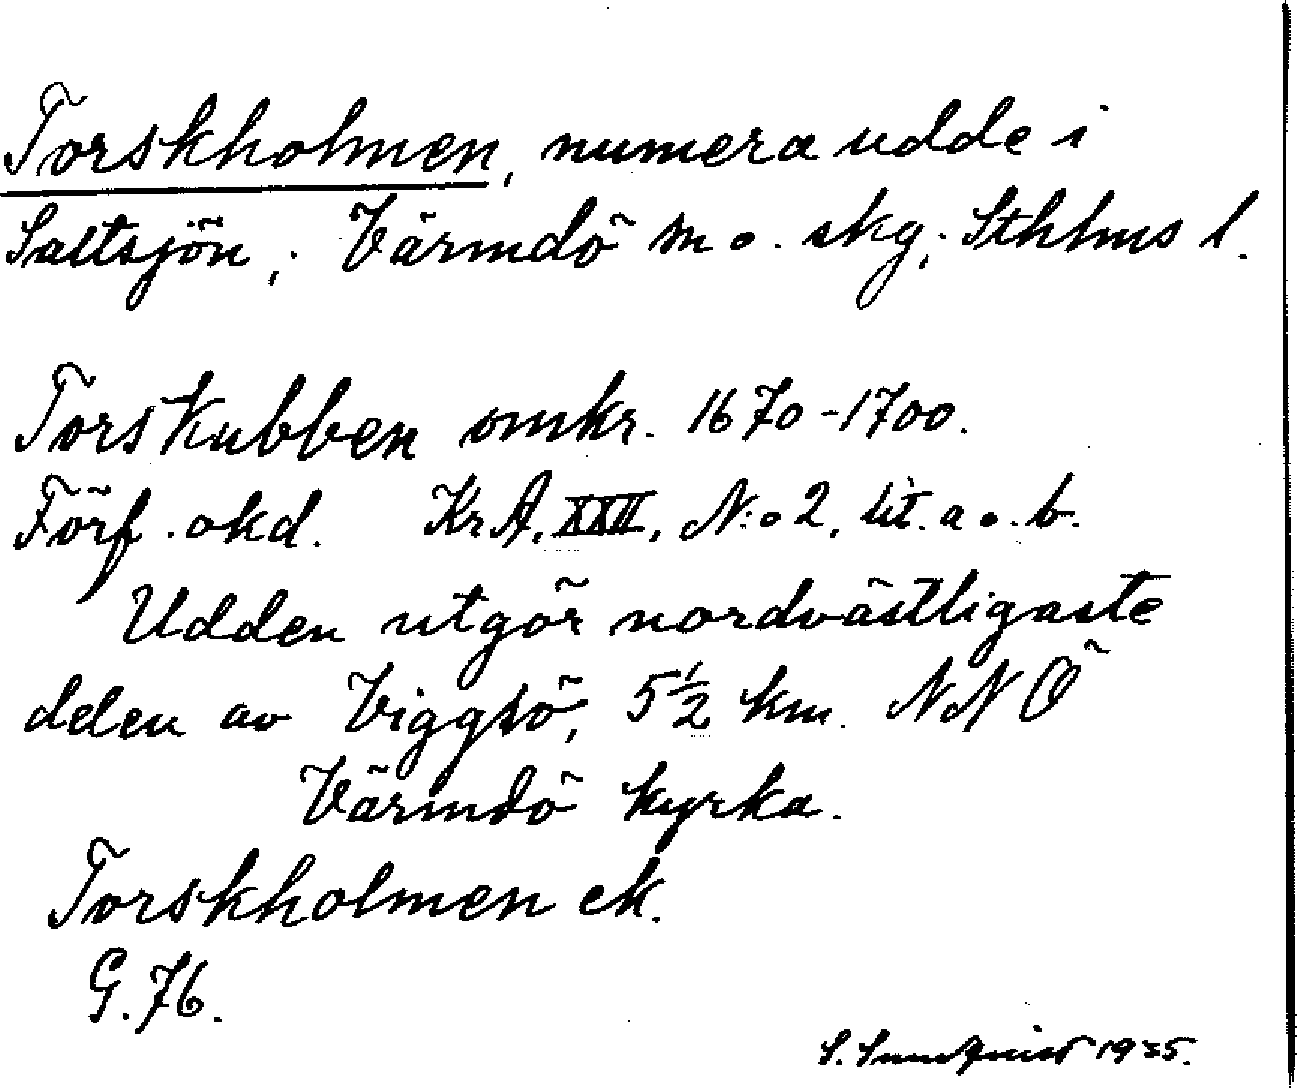 Torskholmen, numera udde i
Saltsjön, Värmdö sn o. skg, Sthlms l.
Torskubben omkr. 1670-1700.
Förf. okd. KrA. XXII, N:o 2, lit. a o. b.
Udden utgör nordvästligaste
delen av Viggsö, 5 1/2 km. NNÖ
Värmdö kyrka.
Torskholmen ek.
G. 76.
S. Sundquist 1935.